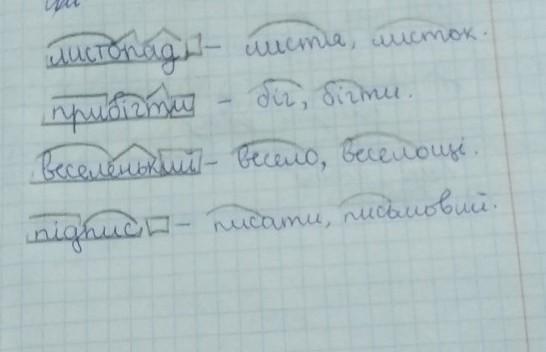 листопад – листя, листок.
прибігти – біг, бігти.
веселенький – весело, веселощі.
підпис – писати, письмовий.